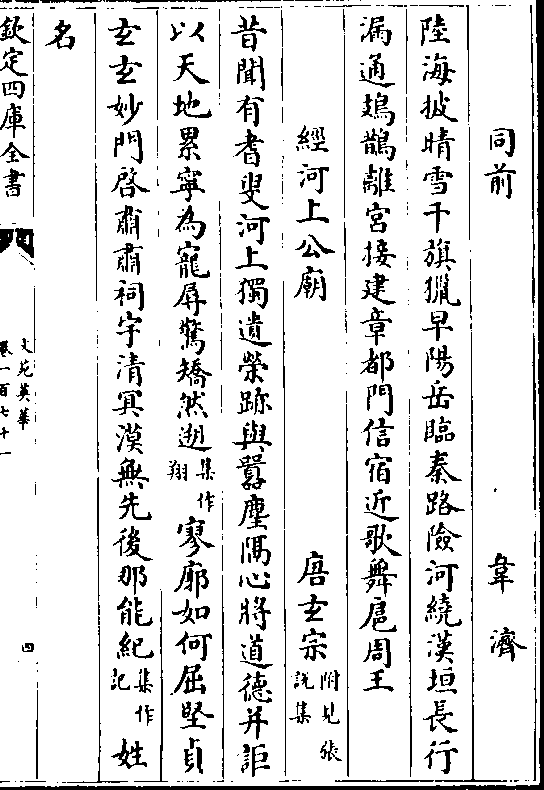 同前　　　韋濟
陸海披晴雪千旗獵早陽岳臨秦路險河繞漢垣長行
漏通鳷鵲離宮接建章都門信宿近歌舞扈周王
經河上公廟　　　唐玄宗附見張說集
昔聞有耆叟河上獨遺榮跡與囂塵隔心將道德并詎
以天地累寧為寵辱驚矯然翔集作翔寥廓如何屈堅貞
玄玄妙門啓肅肅祠宇清冥漠無先後那能紀集作記姓
名
欽定四庫全書
文苑英華
卷一百七十一
四